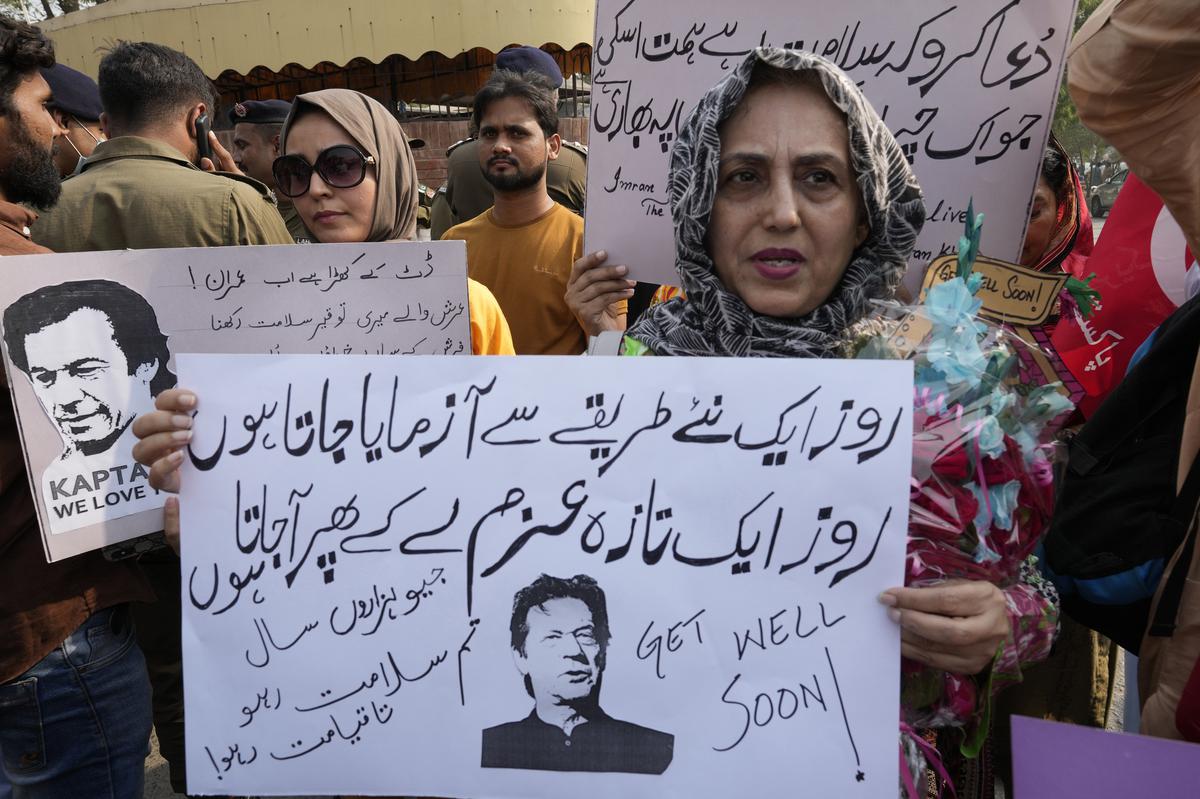 دُعا کرو کہ یہ سلامت رہے ہمت اسکی
جو اک چراغ
پہ بھاری ہے
Imran
The
live
GET WELL SOON!
ڈٹ کے کھڑا ہے اب عمران !
عرش والے میری توقیر سلامت رکھنا
فرش کے سارے خداؤں
KAPTA
WE LOVE Y
روز ایک نئے طریقے سے آزمایا جاتا ہوں
روز ایک تازہ عزم لے کے پھر آجاتا ہوں
جیو ہزاروں سال
تم سلامت رہو
تاقیامت رہو!
GET WELL
SOON!